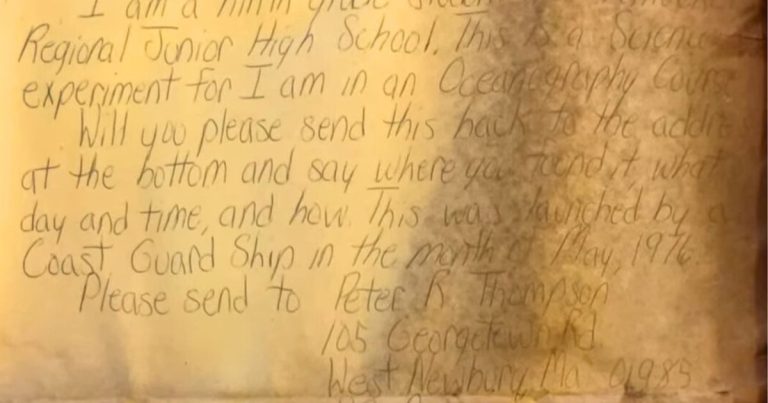 I am a ninth grade
Regional Junior High School. This is a Science
experiment for I am in an Oceanography Course
Will you please send this back to the address
at the bottom and say where you found it, what
day and time, and how. This was launched by a
Coast Guard Ship in the month of May, 1976.
Please send to Peter R Thompson
105 Georgetown Rd.
West Newbury, Ma 01985